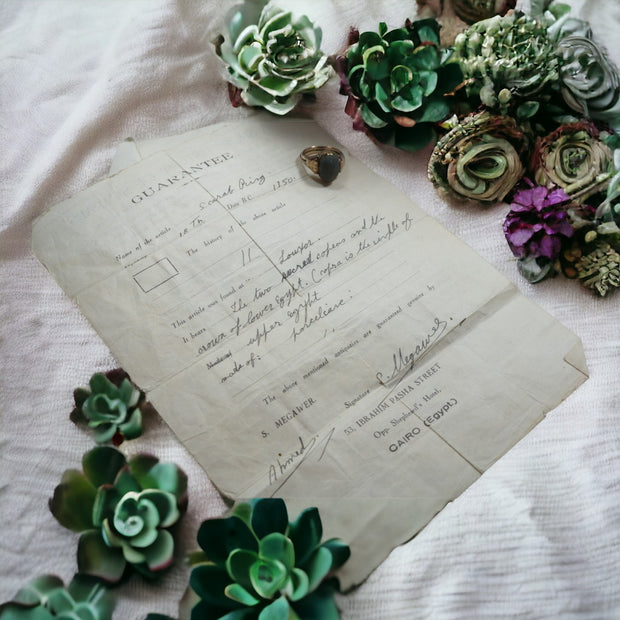 GUARANTEE
Name of the article Scarab Ring
18 Th. Date B.C. 1350
The history of the above article
11
This article was found at Louxor.
It bears The two sacred capens and the
crown of lower Egypt. Cropra is the simple of
upper Egypt
made of: porceliane:
The above mentioned antiquities are guaranteed genuine by
S. MEGAWER Signature S. Megawer
53, IBRAHIM PASHA STREET
Opp. Shepheard's Hotel,
CAIRO (EGYPT)
Ahmed